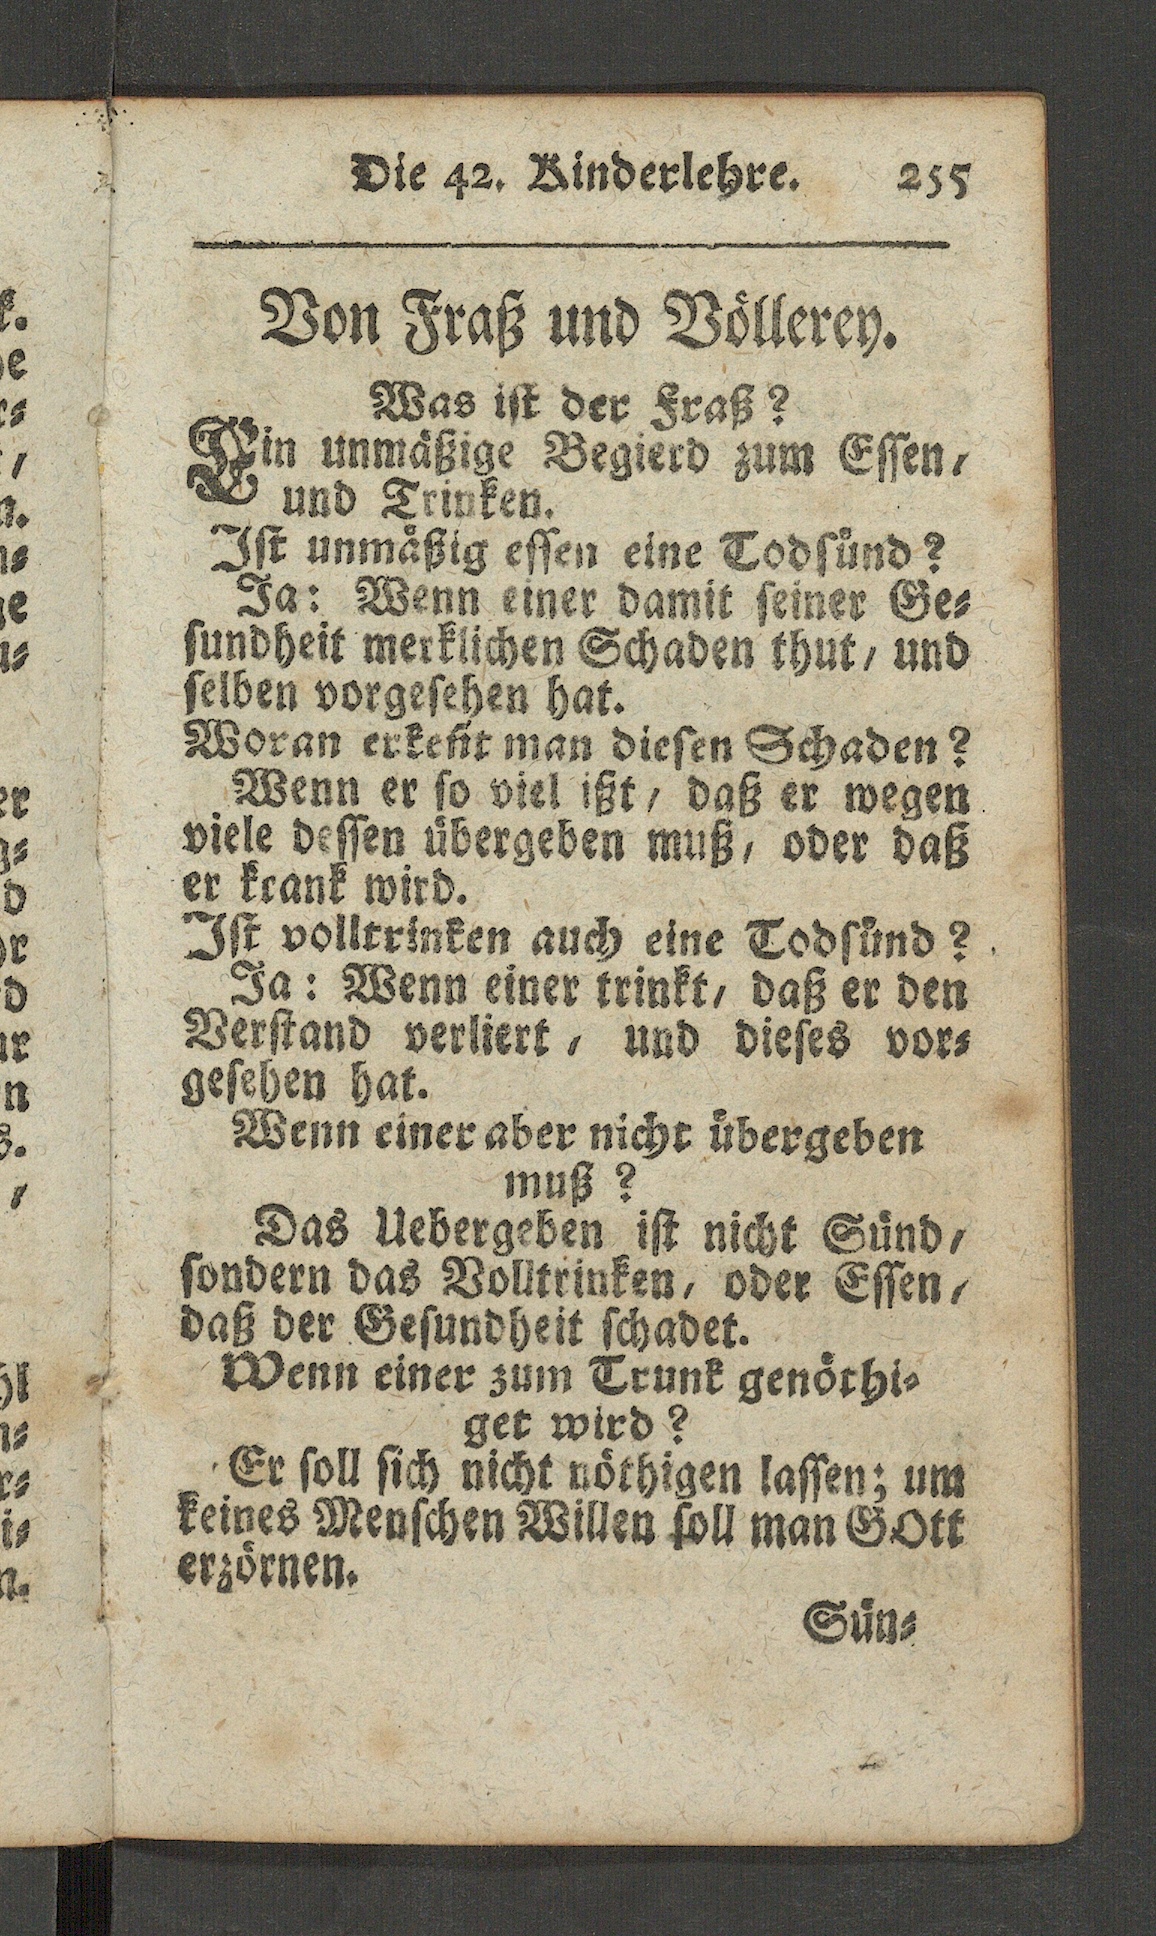 Die 42. Kinderlehre. 255
Von Fraß und Völlerey.
Was ist der Fraß?
Ein unmäßige Begierd zum Essen,
und Trinken.
Ist unmäßig essen eine Todsünd?
Ja: Wenn einer damit seiner Ge-
sundheit merklichen Schaden thut, und
selben vorgesehen hat.
Woran erkeñt man diesen Schaden?
Wenn er so viel ißt, daß er wegen
viele dessen übergeben muß, oder daß
er krank wird.
Ist volltrinken auch eine Todsünd?
Ja: Wenn einer trinkt, daß er den
Verstand verliert, und dieses vor-
gesehen hat.
Wenn einer aber nicht übergeben
muß?
Das Uebergeben ist nicht Sünd,
sondern das Volltrinken, oder Essen,
daß der Gesundheit schadet.
Wenn einer zum Trunk genöthi-
get wird?
Er soll sich nicht nöthigen lassen; um
keines Menschen Willen soll man GOtt
erzörnen.
Sün-